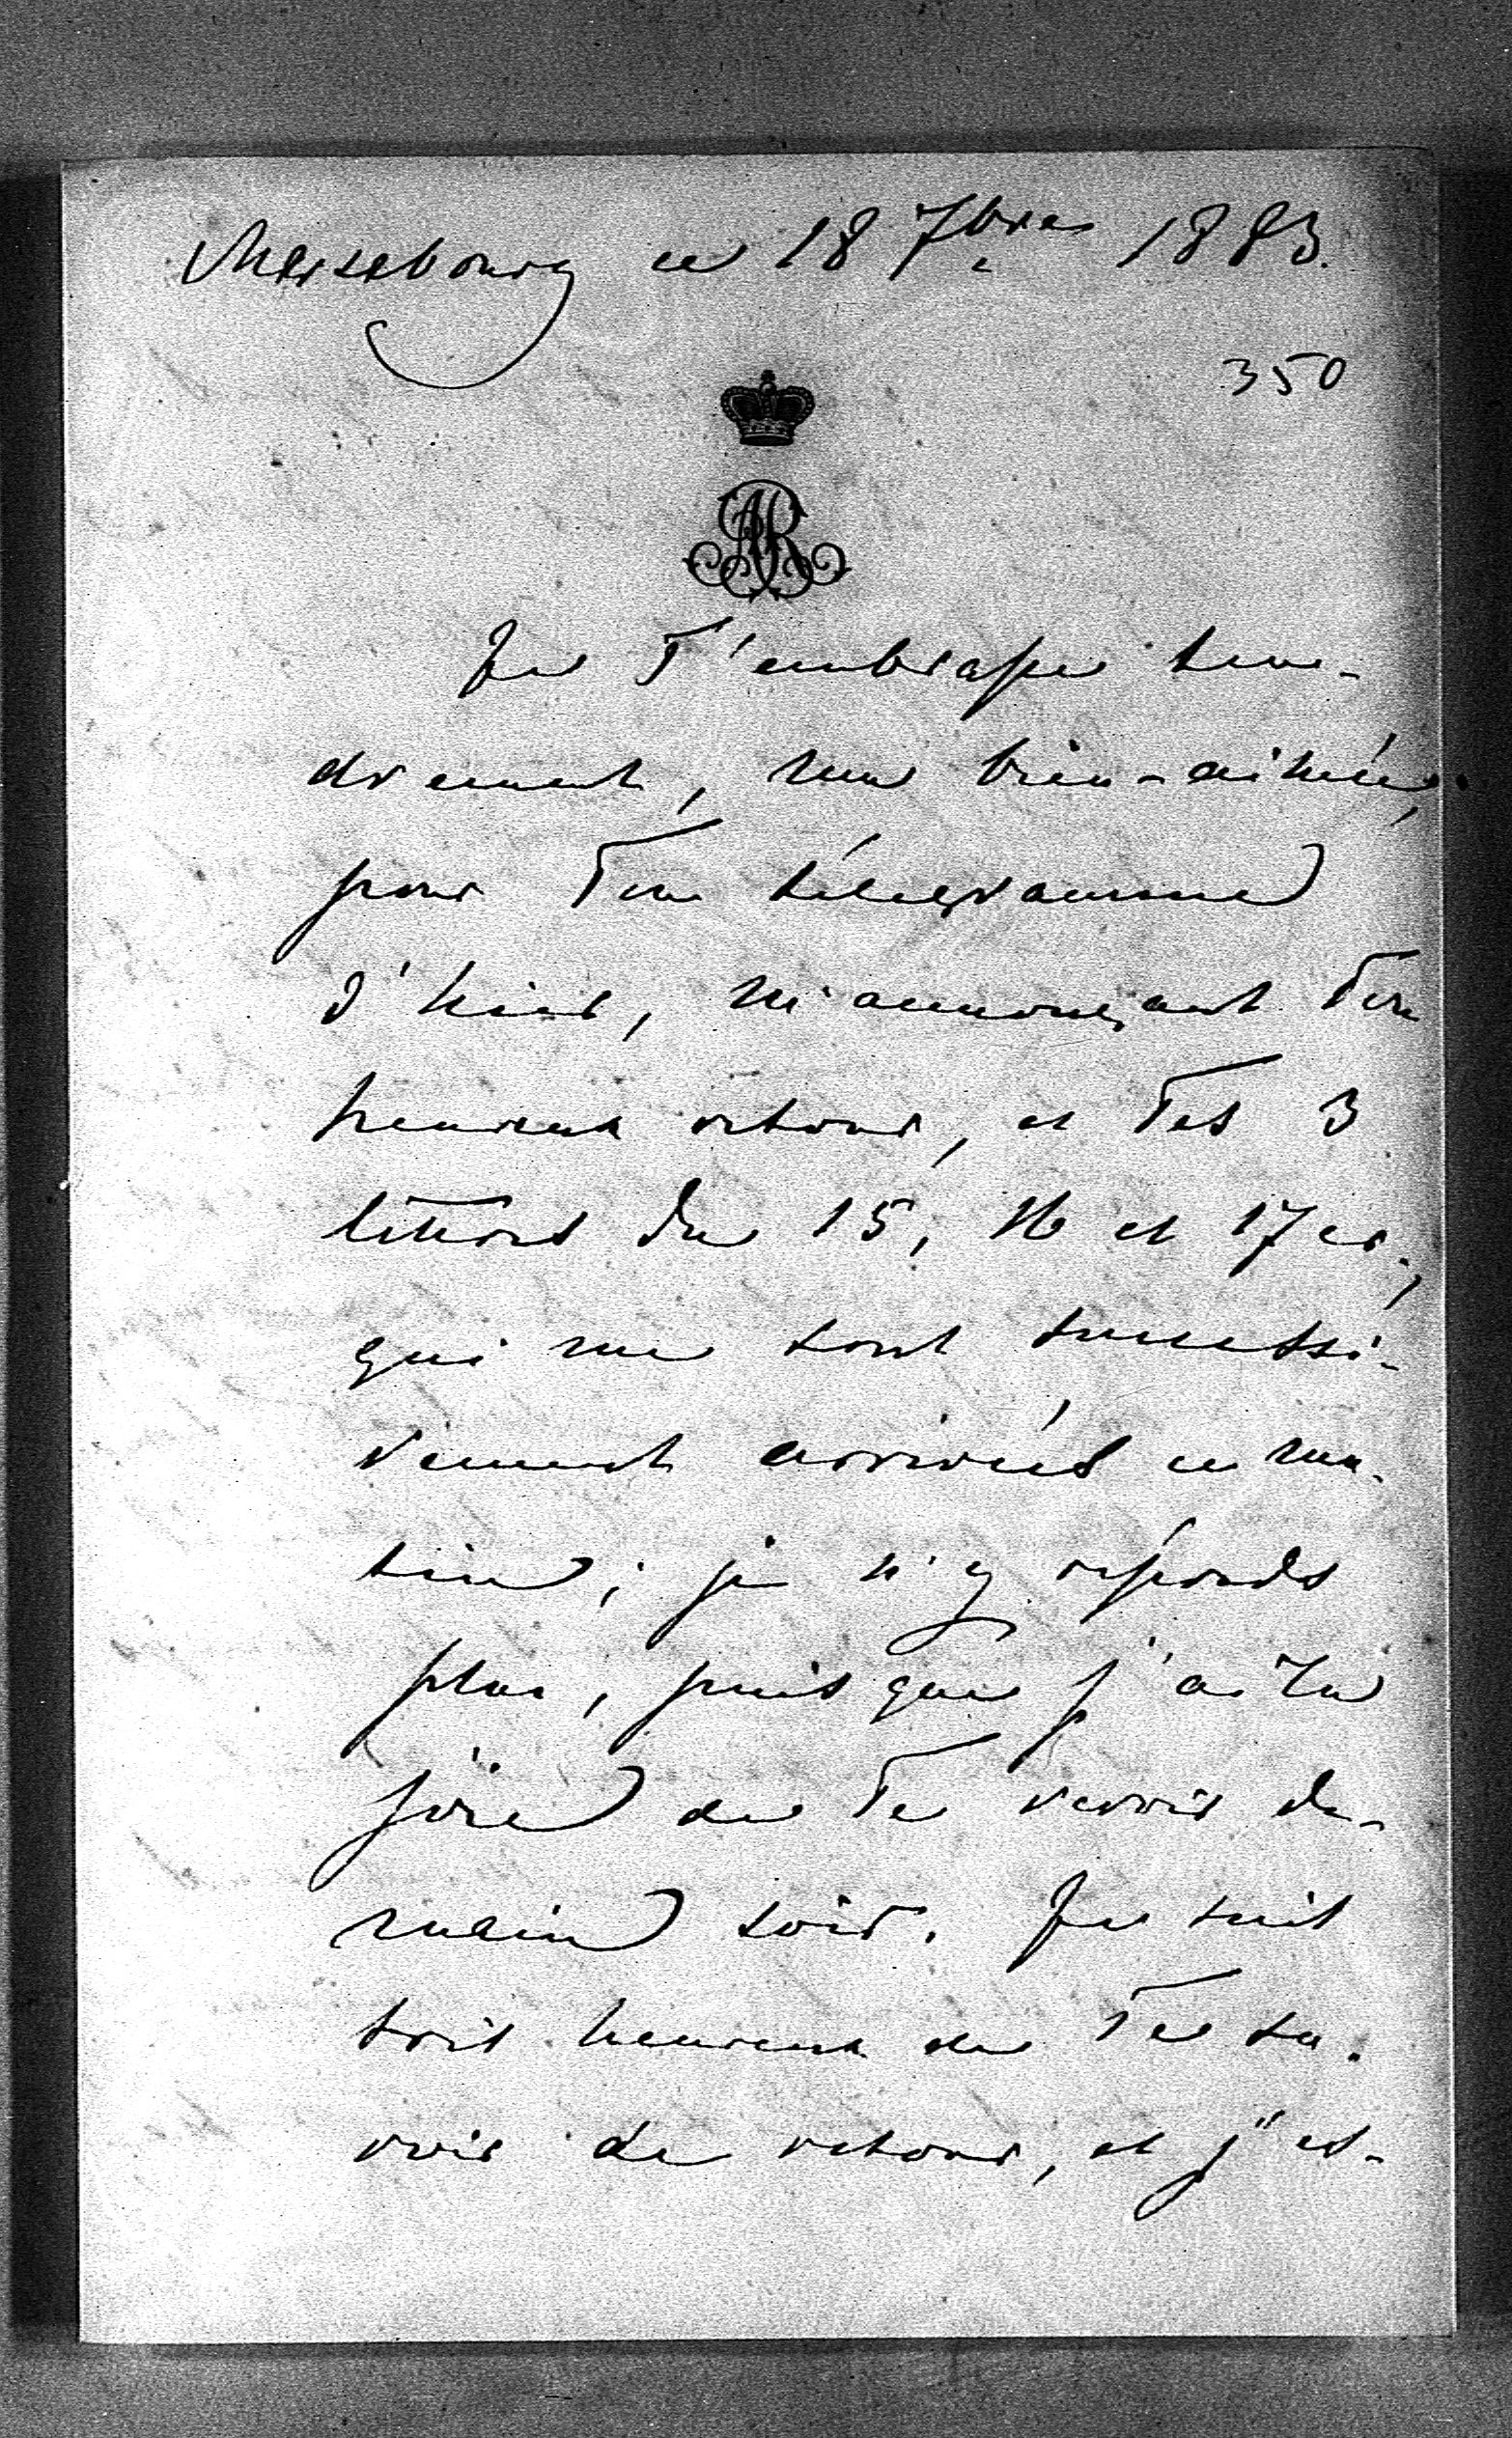 Mersebourg ce 18 7bre 1883.
350
AR
Je T'embrasse ten-
drement, ma bien-aimée,
pour Ton télégramme
d'hier, m'annonçant Ton
heureux retour, et Tes 3
lettres du 15, 16 et 17 cr.,
qui me sont successi-
vement arrivées ce ma-
tin; je n'y réponds
plus, puisque j'ai la
joie de Te revoir de-
main soir. Je suis
très heureux de Te sa-
voir de retour, et j'es-